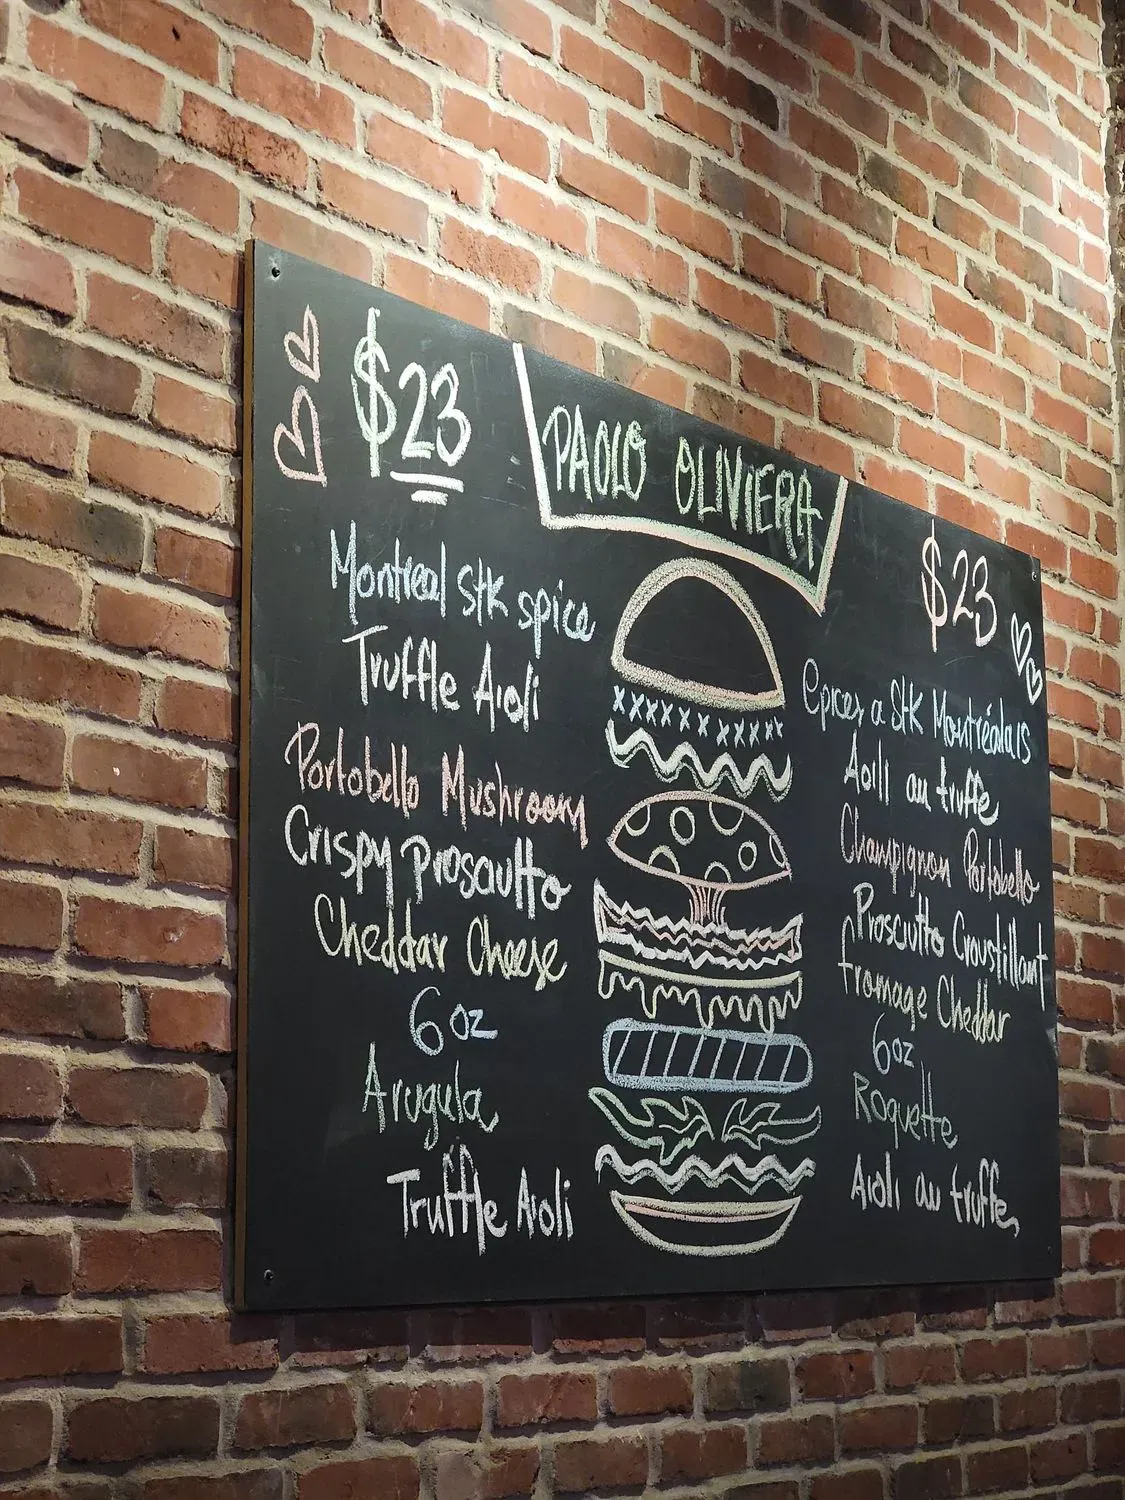 $23
PAOLO OLIVIERA
$23
Montreal stk spice
Truffle Aioli
Portobello Mushroom
Crispy proscuitto
Cheddar Cheese
6 oz
Arugula
Truffle Aioli
Epices a Stk Montréalais
Aoili au truffe
Champignon Portobello
Prosciutto Croustillant
fromage Cheddar
6oz
Roquette
Aioli au truffe